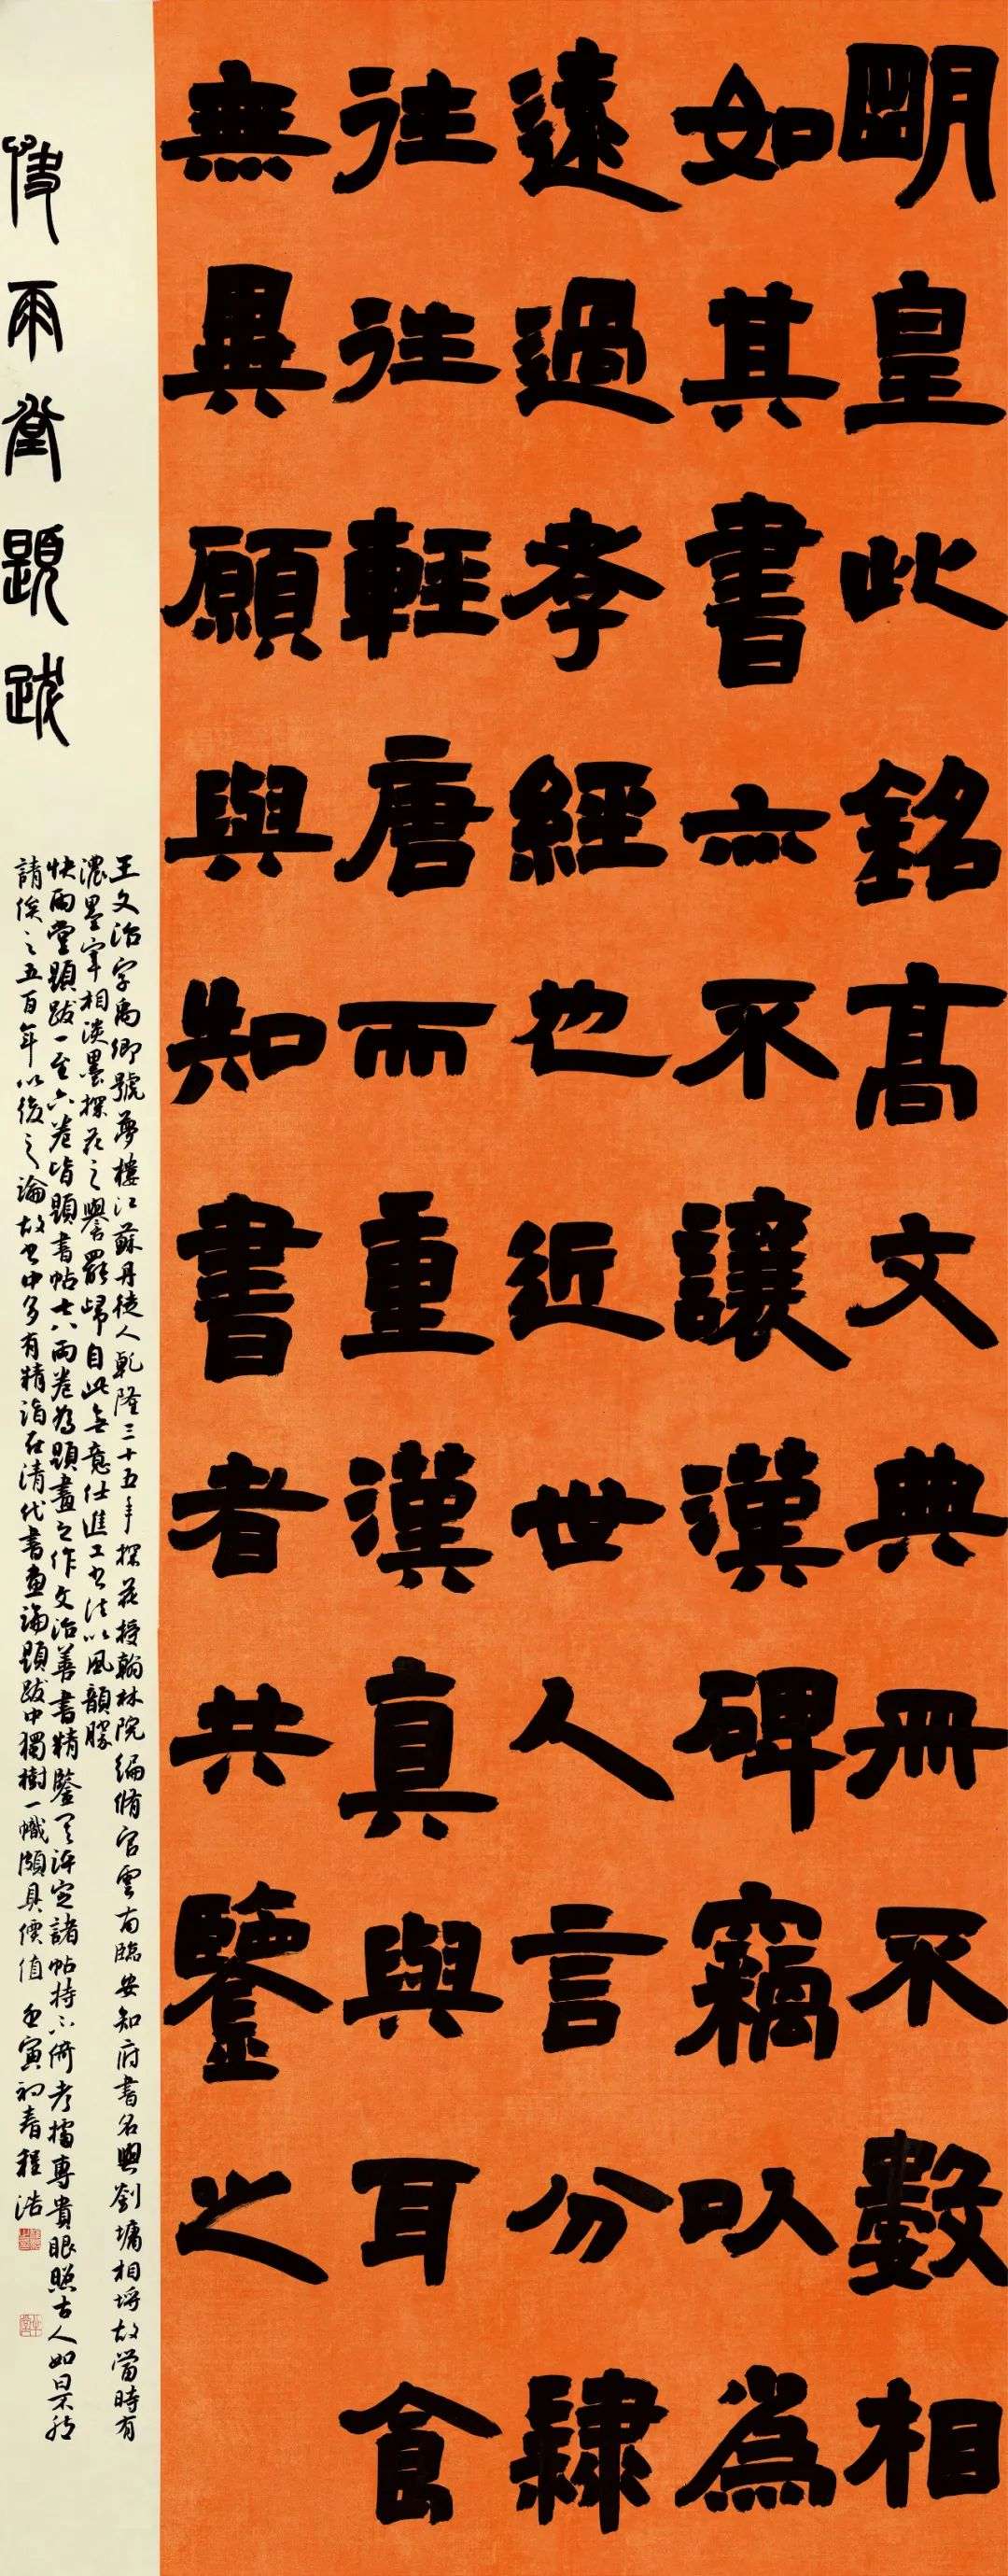 明皇此銘高文典冊不數相
如其書亦不讓漢碑竊以為
遠過孝經也近世人言分隸
往往輕唐而重漢真與耳食
無異願與知書者共鑒之
快雨堂題跋
王文治字禹卿號夢樓江蘇丹徒人乾隆三十五年探花授翰林院編脩官雲南臨安知府書名與劉墉相埒故當時有
濃墨宰相淡墨探花之譽罷歸自此無意仕進工書法以風韻勝
快雨堂題跋一至六卷皆題書帖七八兩卷為題畫之作文治善書精鑒其評定諸帖持不倚考據專貴眼照古人如是不
請俟之五百年以後之論故書中多有精詣在清代書畫論題跋中獨樹一幟頗具價值 壬寅初春程浩